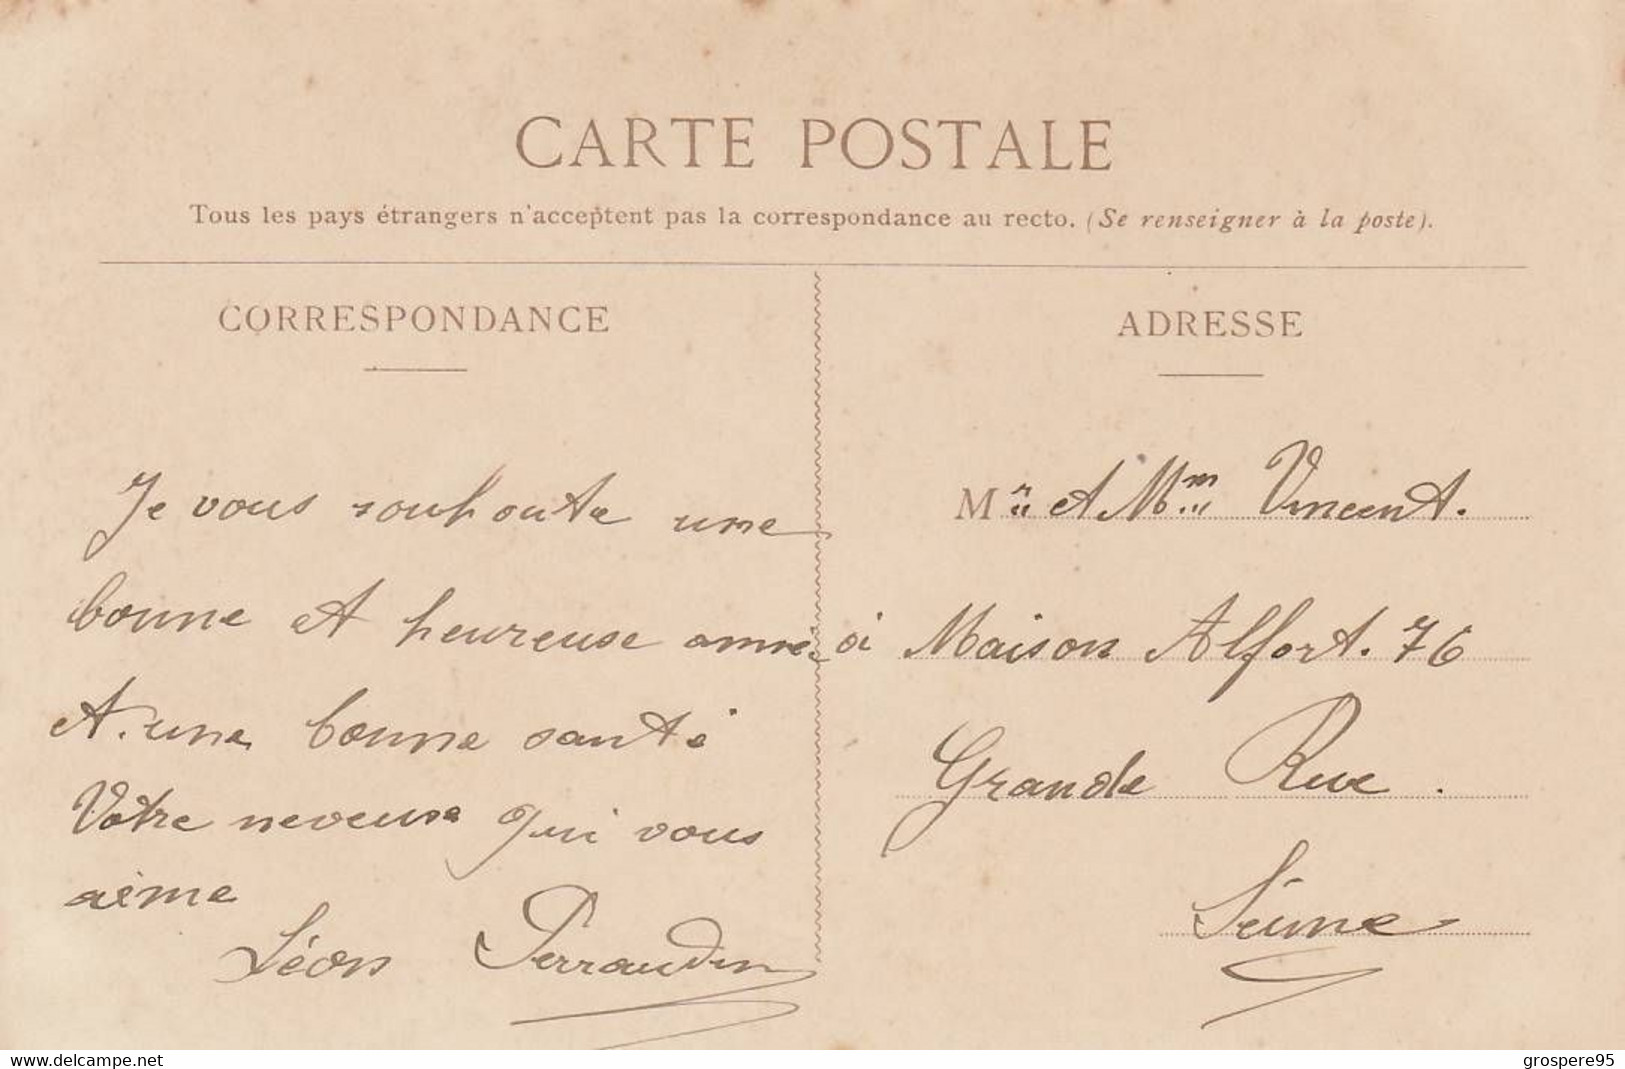 CARTE POSTALE
Tous les pays étrangers n'acceptent pas la correspondance au recto. (Se renseigner à la poste).
CORRESPONDANCE
Je vous souhoute une
bonne et heureuse anné
et une bonne santé
Votre neveuse qui vous
aime
Léon Perraudin
ADRESSE
Mr et Mm Vincent.
à Maison Alfort. 76
Grande Rue.
Seine
www.delcampe.net
grospere95